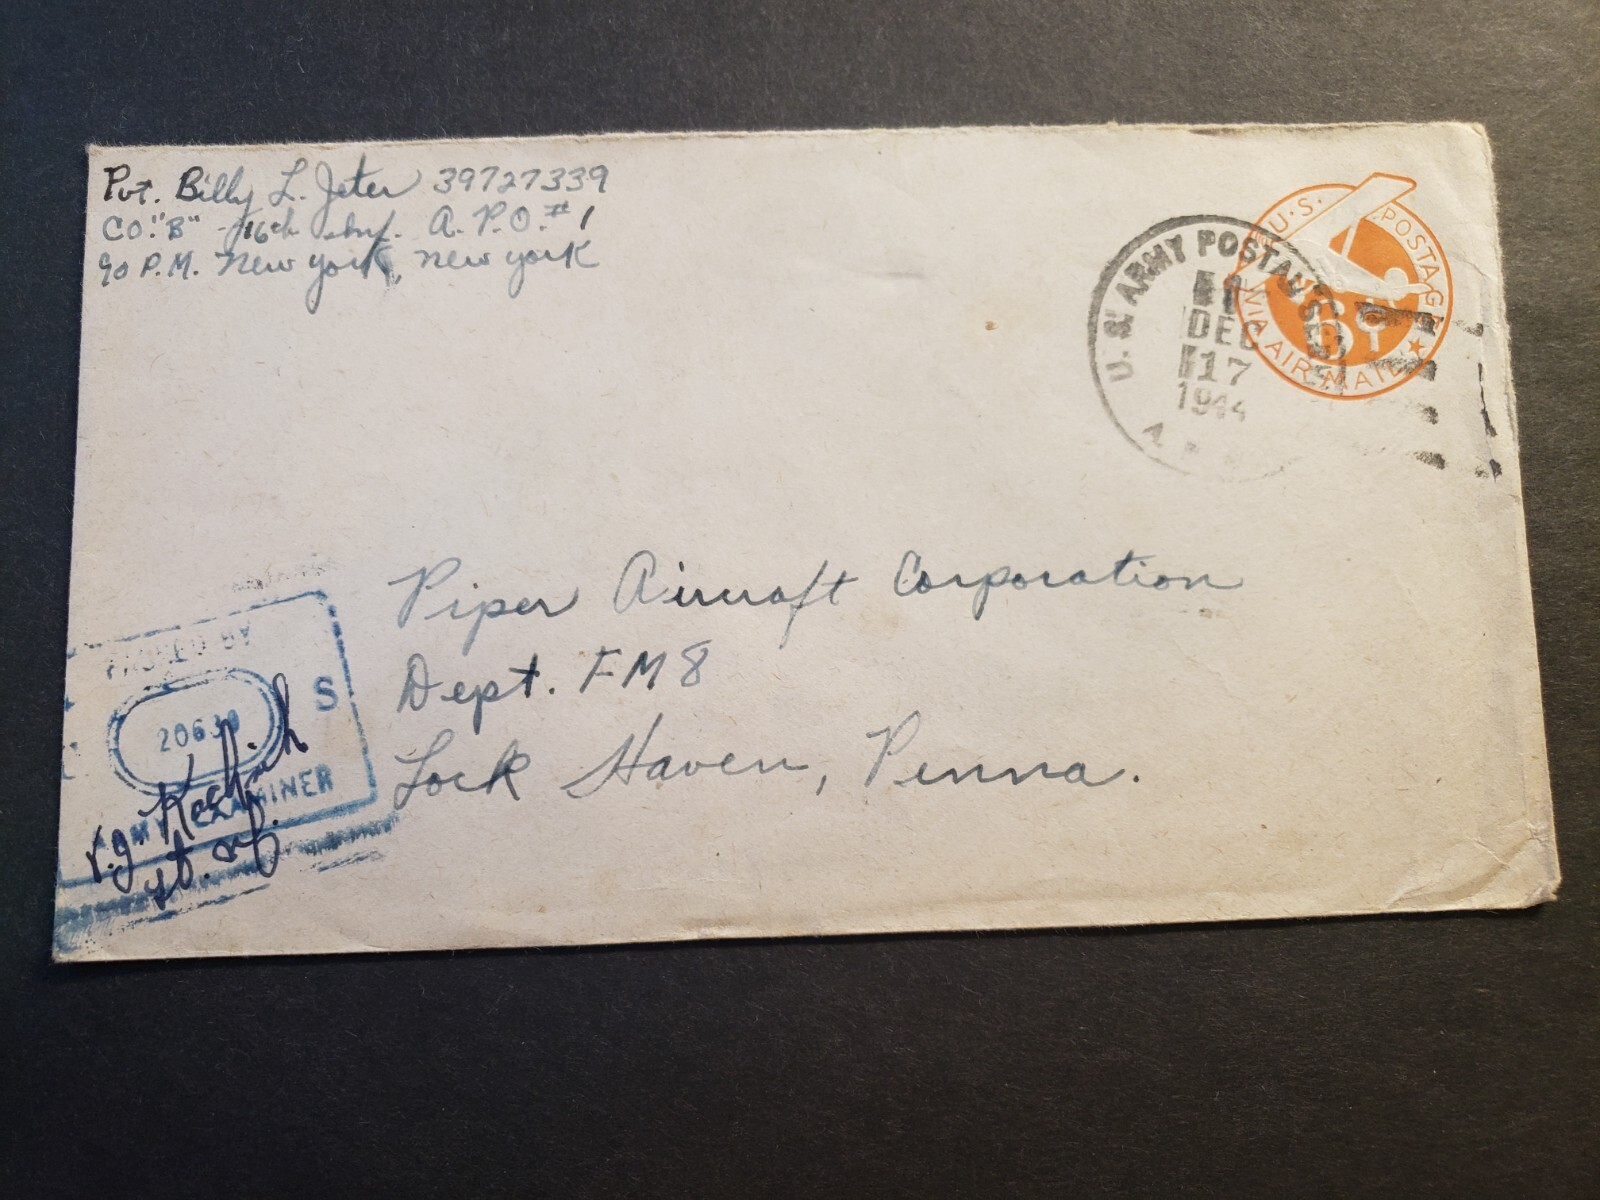 Pvt. Billy L. Jeter 39727339
CO. "B" - 16th Inf. A.P.O. # 1
℅ P.M. New York, New York
U.S. ARMY POSTAL
DEC
17
1944
U.S. POSTAGE
6¢
VIA AIR MAIL
Piper Aircraft Corporation
Dept. FM8
Lock Haven, Penna.
BY
S
EXAMINER